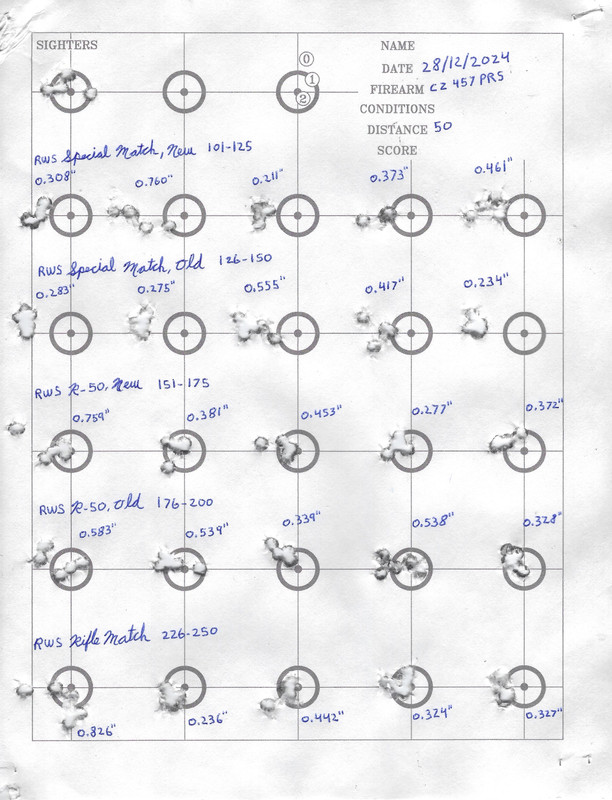 SIGHTERS
NAME
DATE 28/12/2024
FIREARM CZ 457 PRS
CONDITIONS
DISTANCE 50
SCORE
0
1
2
RWS Special Match, New 101-125
0.308" 0.760" 0.211" 0.373" 0.461"
RWS Special Match, Old 126-150
0.283" 0.275" 0.555" 0.417" 0.234"
RWS R-50, New 151-175
0.759" 0.381" 0.453" 0.277" 0.372"
RWS R-50, Old 176-200
0.583" 0.539" 0.339" 0.538" 0.328"
RWS Rifle Match 226-250
0.826" 0.236" 0.442" 0.324" 0.327"